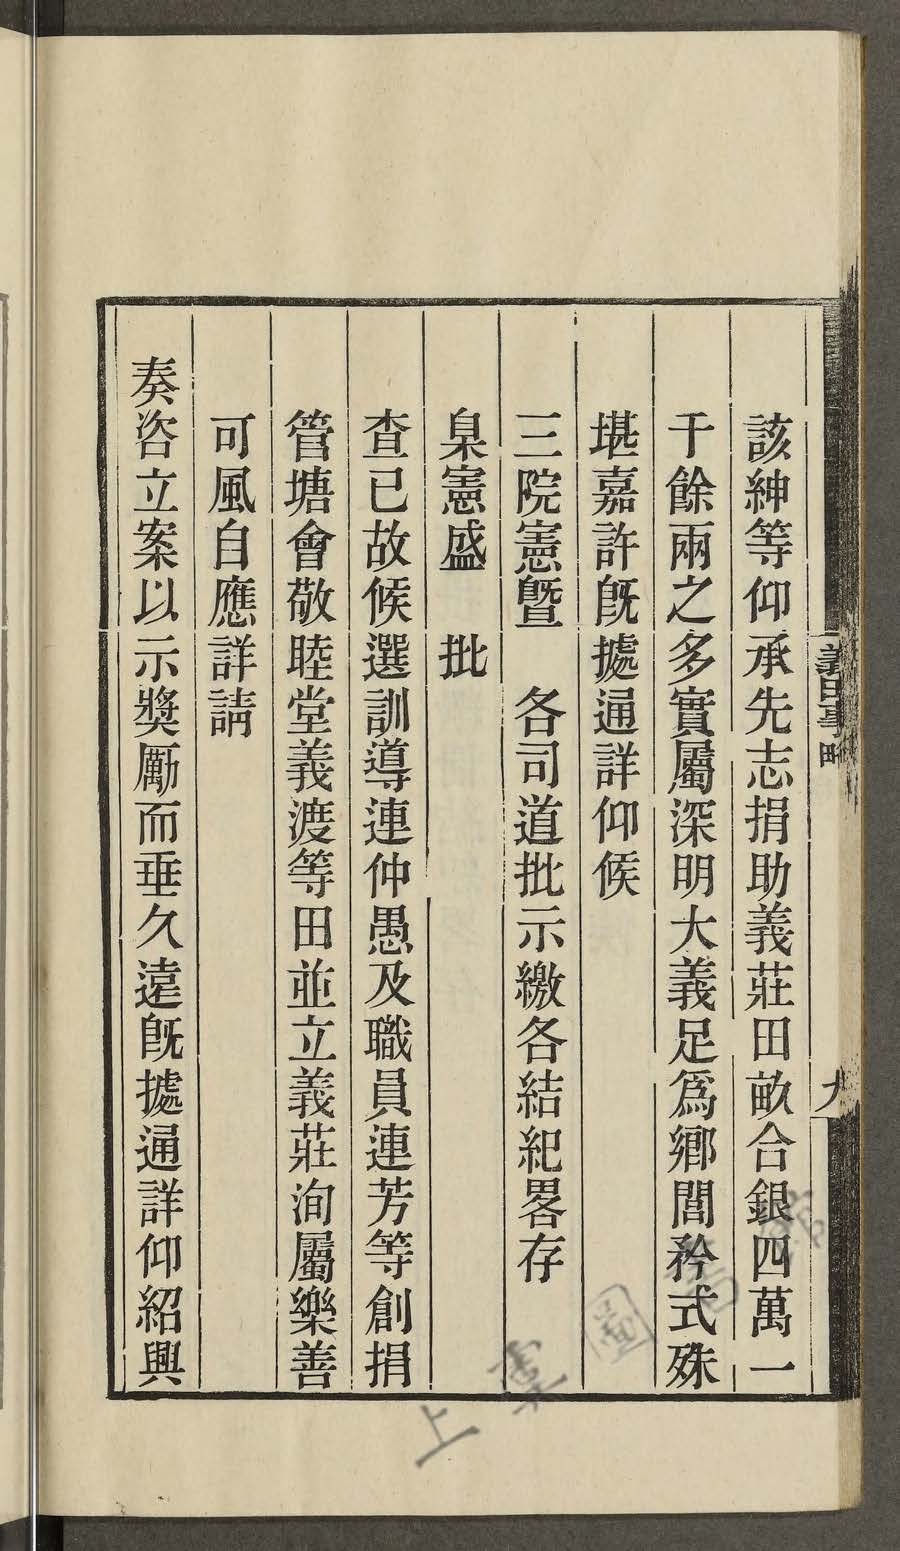 該紳等仰承先志捐助義莊田畝合銀四萬一
千餘兩之多實屬深明大義足爲鄉閭矜式殊
堪嘉許旣據通詳仰候
三院憲曁　各司道批示繳各結紀畧存
臬憲盛　批
查已故候選訓導連仲愚及職員連芳等創捐
管塘會敬睦堂義渡等田並立義莊洵屬樂善
可風自應詳請
奏咨立案以示獎勵而垂久遠旣據通詳仰紹興
上虞圖書館